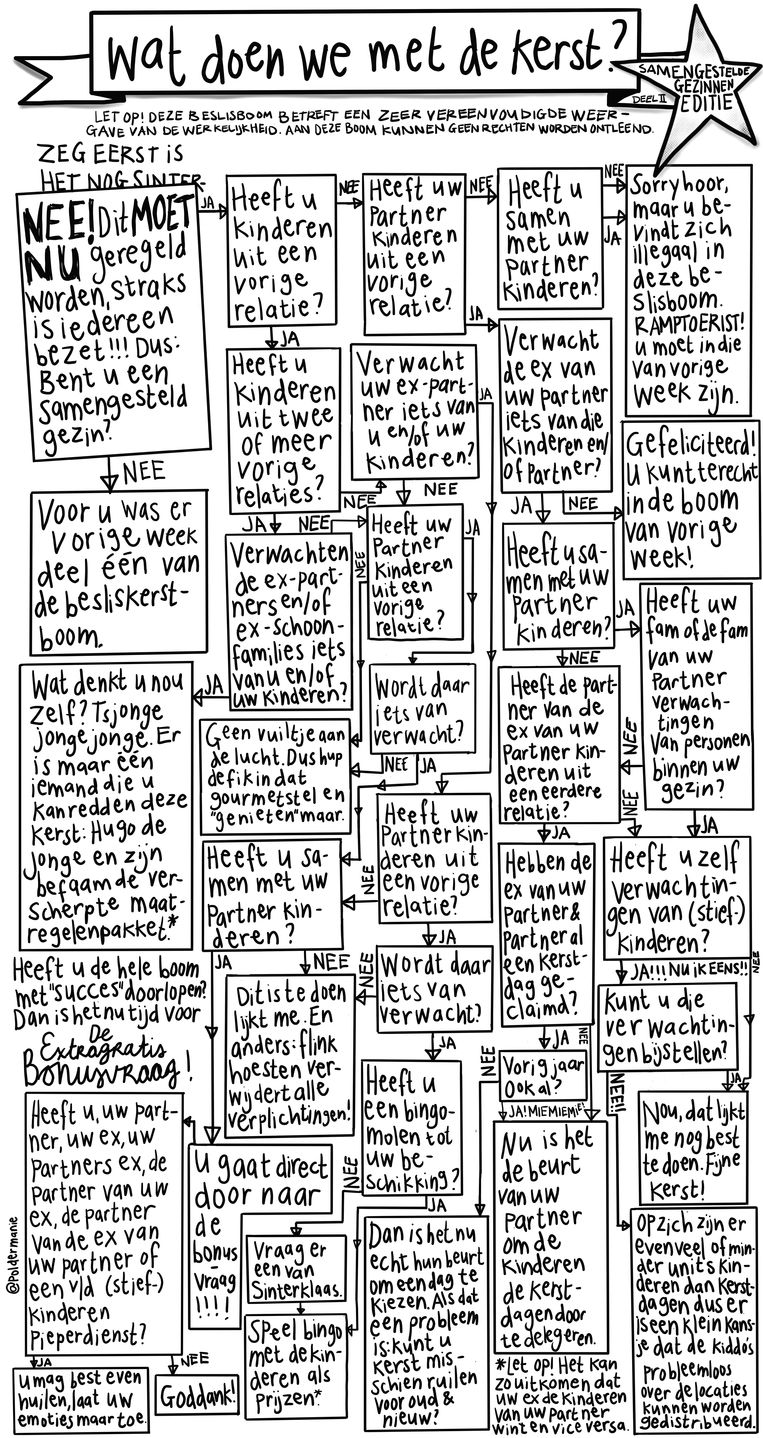 Wat doen we met de kerst?
SAMENGESTELDE
GEZINNEN
EDITIE
DEEL II
LET OP! DEZE BESLISBOOM BETREFT EEN ZEER VEREENVOUDIGDE WEER-
GAVE VAN DE WERKELIJKHEID. AAN DEZE BOOM KUNNEN GEEN RECHTEN WORDEN ONTLEEND.
ZEG EERST IS
HET NOG SINTER
NEE! Dit MOET
NU geregeld
worden, straks
is iedereen
bezet!!! Dus:
Bent u een
samengesteld
gezin?
JA
NEE
Voor u was er
vorige week
deel één van
de besliskerst-
boom.
Heeft u
kinderen
uit een
vorige
relatie?
NEE
JA
Heeft uw
partner
kinderen
uit een
vorige
relatie?
NEE
JA
Heeft u
samen
met uw
partner
kinderen?
NEE
JA
Sorry hoor,
maar u be-
vindt zich
illegaal in
deze be-
slisboom.
RAMPTOERIST!
U moet in die
van vorige
week zijn.
Heeft u
kinderen
uit twee
of meer
vorige
relaties?
NEE
JA
Verwacht
uw ex-part-
ner iets van
u en/of uw
kinderen?
JA
NEE
Verwacht
de ex van
uw partner
iets van die
kinderen en/
of partner?
JA
NEE
Gefeliciteerd!
U kunt terecht
in de boom
van vorige
week!
Verwachten
de ex-part-
ners en/of
ex-schoon-
families iets
van u en/of
uw kinderen?
NEE
JA
Heeft uw
partner
kinderen
uit een
vorige
relatie?
NEE
JA
Heeft u sa-
men met uw
partner
kinderen?
JA
NEE
Heeft uw
fam of de fam
van uw
partner
verwach-
tingen
van personen
binnen uw
gezin?
NEE
NEE
JA
Wat denkt u nou
zelf? Tsjonge
jonge jonge. Er
is maar één
iemand die u
kan redden deze
kerst: Hugo de
Jonge en zijn
befaamde ver-
scherpte maat-
regelenpakket.*
Geen vuiltje aan
de lucht. Dus hup
de fik in dat
gourmetstel en
"genieten" maar.
Wordt daar
iets van
verwacht?
NEE
JA
Heeft de part-
ner van de
ex van uw
partner kin-
deren uit
een eerdere
relatie?
JA
Heeft u sa-
men met uw
partner kin-
deren?
JA
NEE
Heeft uw
partner kin-
deren uit
een vorige
relatie?
NEE
JA
Hebben de
ex van uw
partner &
partner al
een kerst-
dag ge-
claimd?
JA
NEE
Heeft u zelf
verwachtin-
gen van (stief-)
kinderen?
JA!!! NU IK EENS!!
NEE
Heeft u de hele boom
met "succes" doorlopen?
Dan is het nu tijd voor
De
Extra gratis
Bonusvraag!
Dit is te doen
lijkt me. En
anders: flink
hoesten ver-
wijdert alle
verplichtingen!
Wordt daar
iets van
verwacht?
NEE
JA
Kunt u die
verwachtin-
gen bijstellen?
JA
NEE!!
Vorig jaar
ook al?
NEE
JA! MIEMIEMIE!
Heeft u, uw part-
ner, uw ex, uw
partners ex, de
partner van uw
ex, de partner
van de ex van
uw partner of
een v/d (stief-)
kinderen
pieperdienst?
JA
NEE
U gaat direct
door naar
de
bonus-
vraag
!!!!
Heeft u
een bingo-
molen tot
uw be-
schikking?
NEE
JA
Nou, dat lijkt
me nog best
te doen. Fijne
kerst!
Nu is het
de beurt
van uw
partner
om de
kinderen
de kerst-
dagen door
te delegeren.
Vraag er
een van
Sinterklaas.
Speel bingo
met de kin-
deren als
prijzen*
Dan is het nu
echt hun beurt
om een dag te
kiezen. Als dat
een probleem
is: kunt u
kerst mis-
schien ruilen
voor oud &
nieuw?
Op zich zijn er
evenveel of min-
der units kin-
deren dan kerst-
dagen dus er
is een klein kans-
je dat de kiddo's
probleemloos
over de locaties
kunnen worden
gedistribueerd.
U mag best even
huilen, laat uw
emoties maar toe.
Goddank!
*Let op! Het kan
zo uitkomen dat
uw ex de kinderen
van uw partner
wint en vice versa.
@Poldermanie